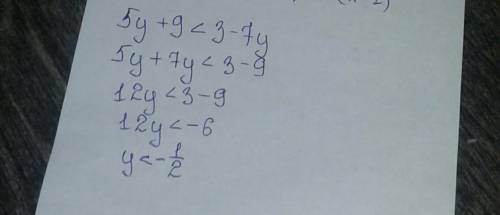 5y + 9 < 3 - 7y
5y + 7y < 3 - 9
12y < 3 - 9
12y < -6
y < -1/2